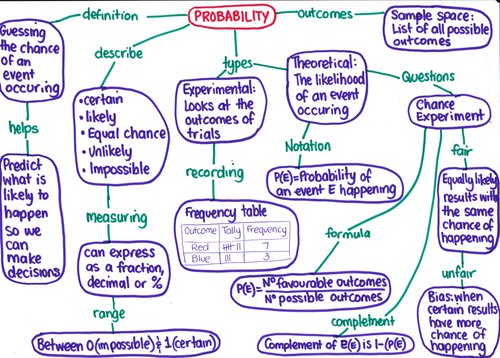 PROBABILITY
definition
Guessing
the chance
of an
event
occuring
helps
Predict
what is
likely to
happen
so we
can
make
decisions
describe
• certain
• likely
• Equal chance
• Unlikely
• Impossible
measuring
can express
as a fraction,
decimal or %
range
Between 0(impossible) & 1(certain)
types
Experimental:
Looks at the
outcomes of
trials
recording
Frequency table
Outcome Tally Frequency
Red 卌 II 7
Blue III 3
Theoretical:
The likelihood
of an event
occuring
Notation
P(E)=Probability of
an event E happening
outcomes
Sample space:
List of all possible
outcomes
Questions
Chance
Experiment
formula
P(E)= Nº favourable outcomes
Nº possible outcomes
completment
Complement of E(E) is 1-(P(E)
fair
Equally likely
results with
the same
chance of
happening
unfair
Bias: when
certain results
have more
chance of
happening